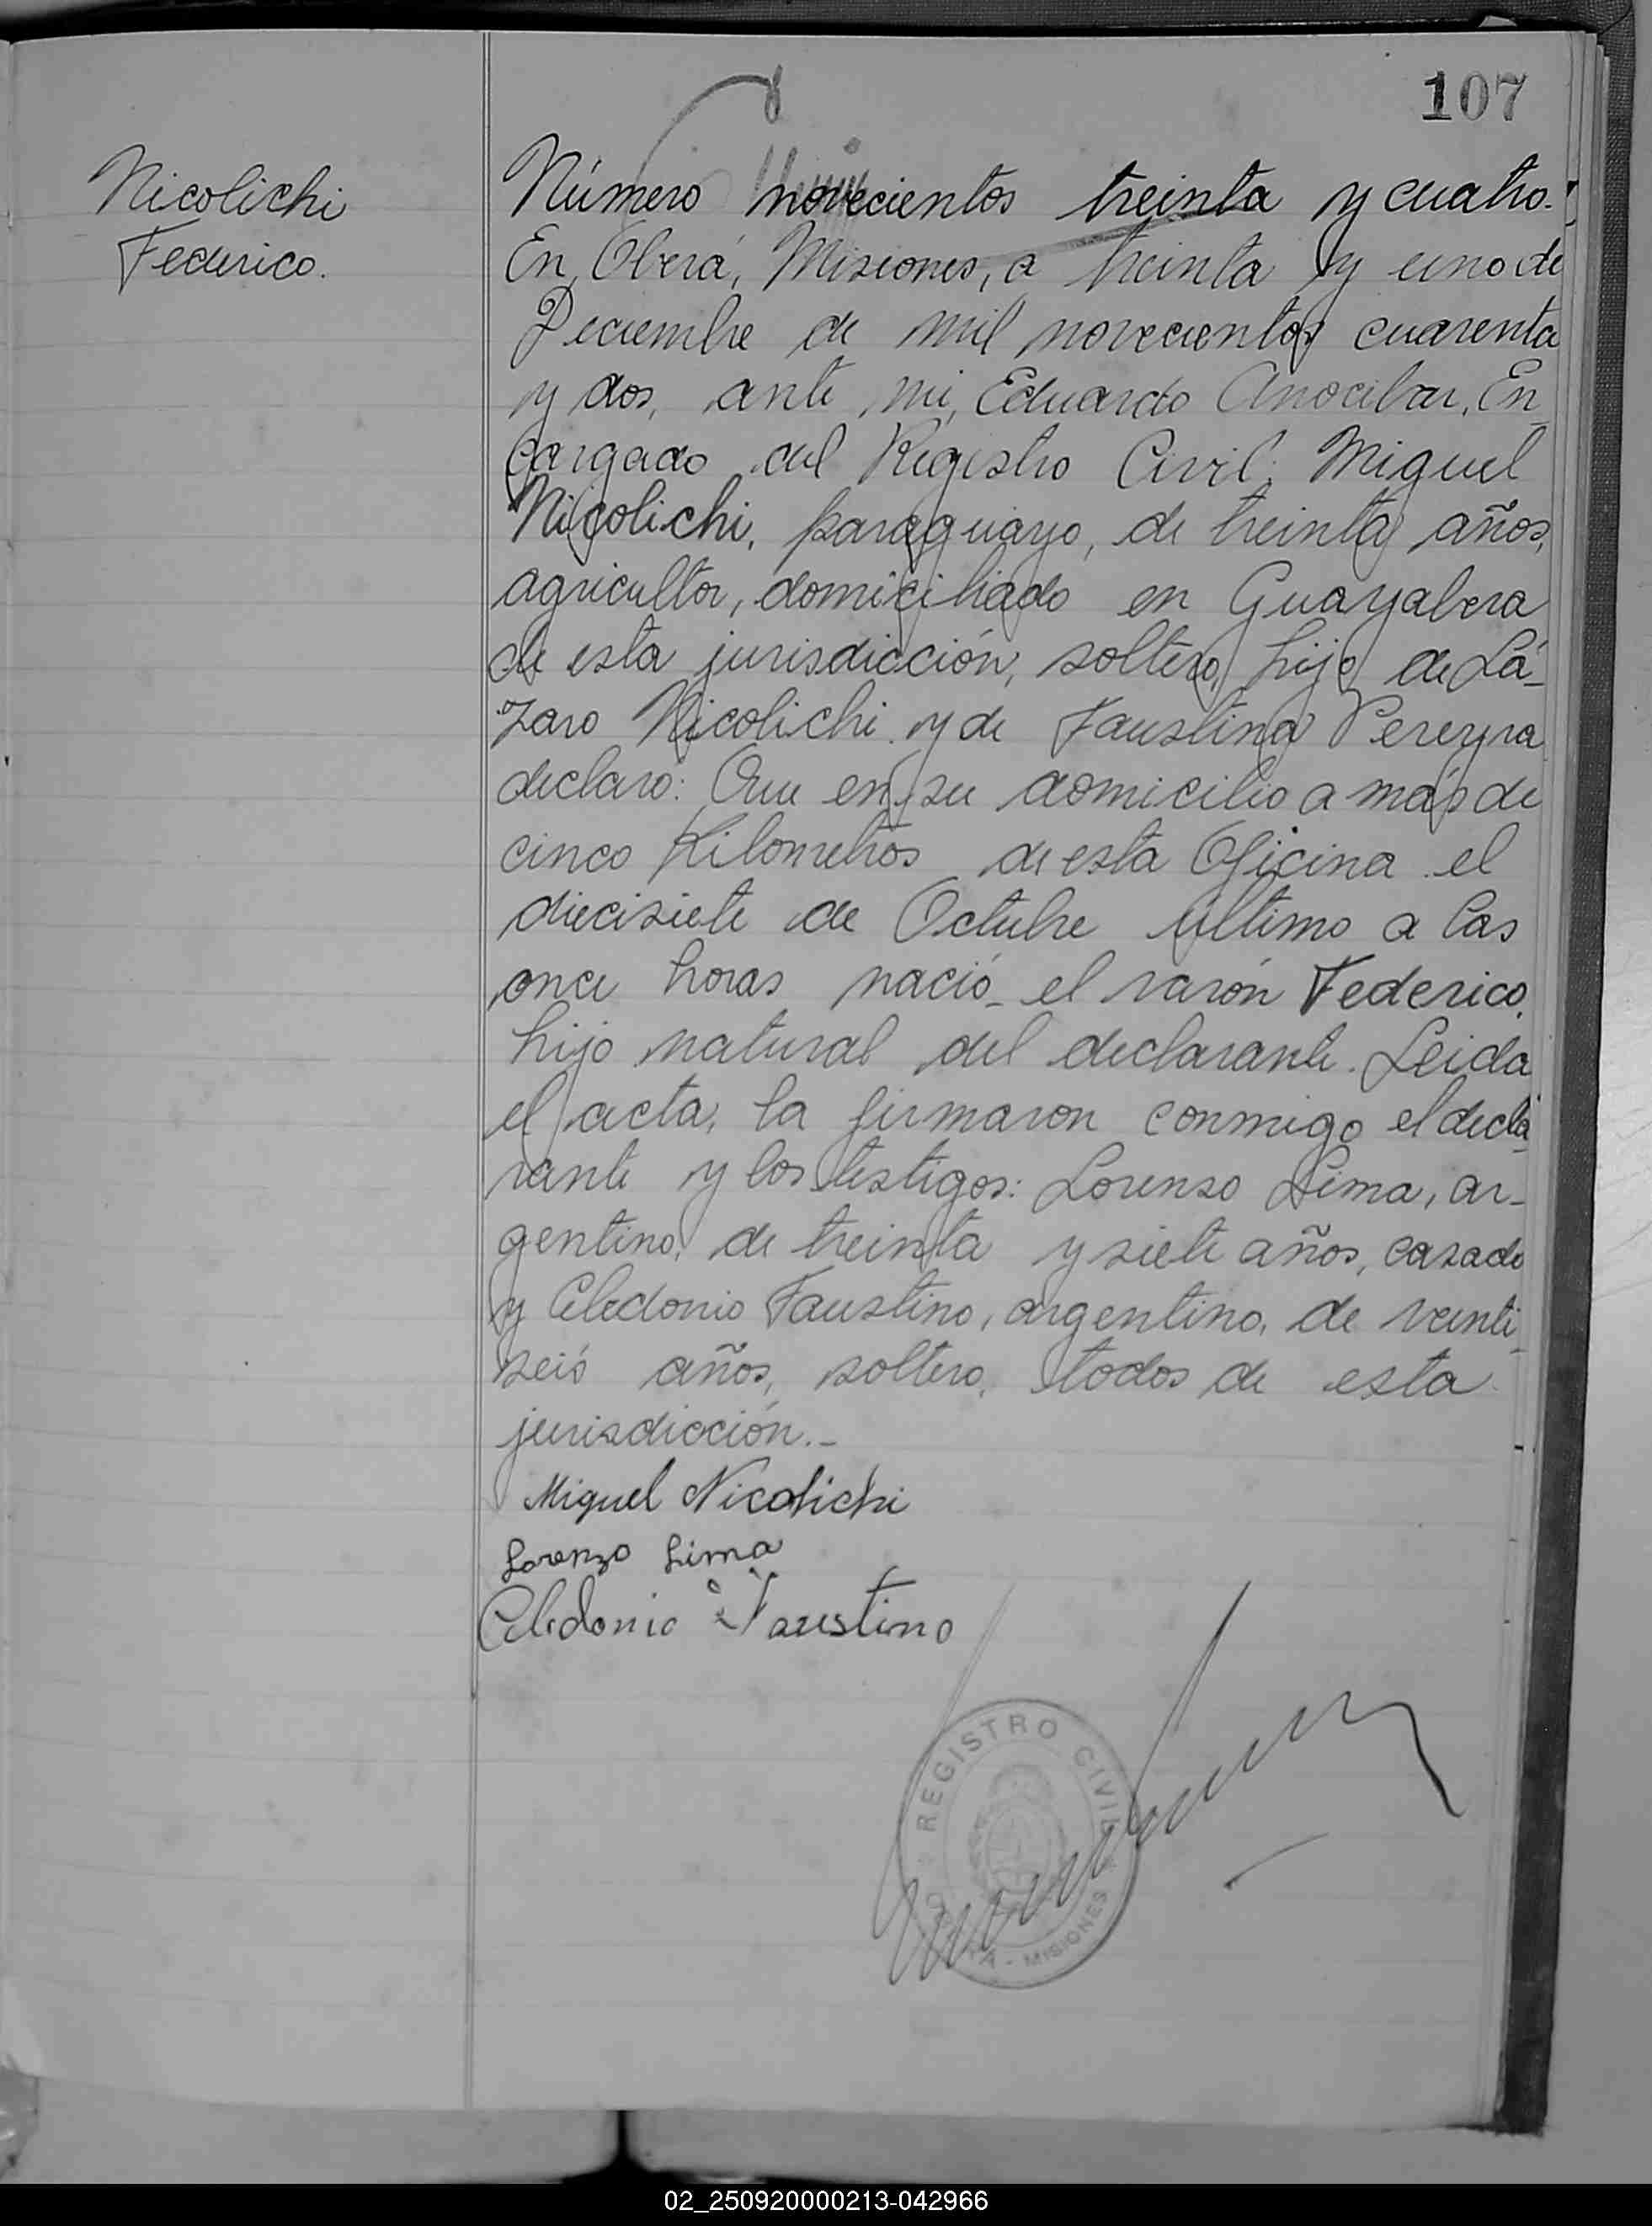 107
Nicolichi
Federico.
Número novecientos treinta y cuatro.-
En Oberá, Misiones, a treinta y uno de
Diciembre de mil novecientos cuarenta
y dos, ante mi, Eduardo Anocibar, En
cargado del Registro Civil; Miguel
Nicolichi, paraguayo, de treinta años,
agricultor, domiciliado en Guayabera
de esta jurisdicción, soltero, hijo de Lá-
zaro Nicolichi y de Faustina Pereyra
declaró: Que en su domicilio a más de
cinco Kilometros de esta Oficina el
diecisiete de Octubre último a las
once horas nació el varón Federico,
hijo natural del declarante. Leida
el acta, la firmaron conmigo el decla
rante y los testigos: Lorenzo Lima, ar-
gentino, de treinta y siete años, casado
y Celedonio Faustino, argentino, de veinti
seis años, soltero, todos de esta
jurisdicción.-
Miguel Nicolichi
Lorenzo Lima
Celedonio Faustino
REGISTRO CIVIL
MISIONES
02_250920000213-042966